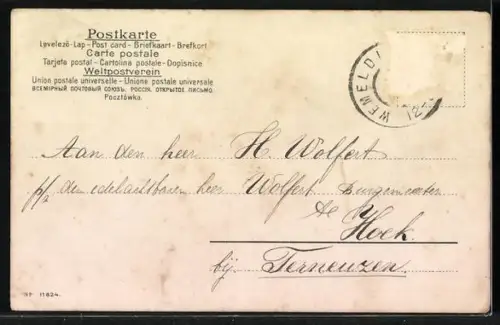 Postkarte
Levelező-Lap - Post card - Briefkaart - Brefkort
Carte postale
Tarjeta postal - Cartolina postale - Dopisnice
Weltpostverein
Union postale universelle - Unione postale universale
ВСЕМІРНЫЙ ПОЧТОВЫЙ СОЮЗЪ. РОССІЯ. ОТКРЫТОЕ ПИСЬМО.
Pocztówka.
WEMELDI
12
Aan den heer H. Wolfert
p/a den edelachtbaren heer Wolfert Burgemeester
te
Hoek.
bij Terneuzen.
11824.